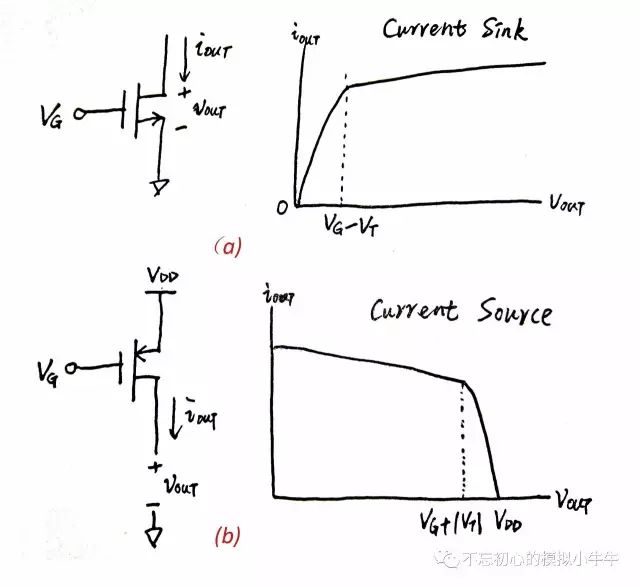 iOUT
VG
+
VOUT
-
(a)
iOUT
Current Sink
0
VG-VT
VOUT
VDD
VG
iOUT
+
VOUT
-
(b)
iOUT
Current Source
VG+|VT|
VDD
VOUT
不忘初心的模拟小牛牛